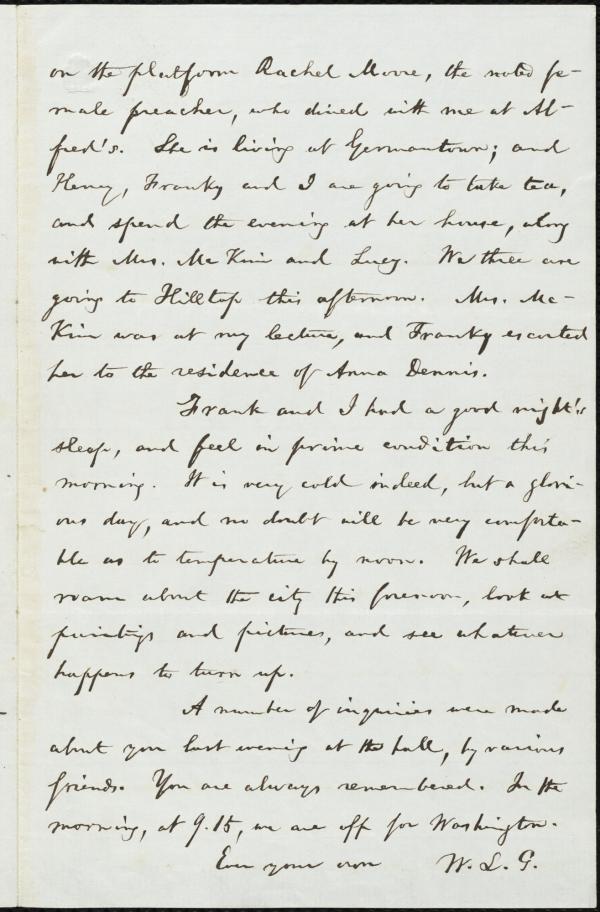 on the platform Rachel Moore, the noted fe-
male preacher, who dined with me at Al-
fred's. She is living at Germantown; and
Henry, Franky and I are going to take tea,
and spend the evening at her house, along
with Mrs. McKim and Lucy. We three are
going to Hilltop this afternoon. Mrs. Mc-
Kim was at my lecture, and Franky escorted
her to the residence of Anna Dennis.
Frank and I had a good night's
sleep, and feel in prime condition this
morning. It is very cold indeed, but a glori-
ous day, and no doubt will be very comforta-
ble as to temperature by noon. We shall
roam about the city this forenoon, look at
paintings and pictures, and see whatever
happens to turn up.
A number of inquiries were made
about you last evening at the hall, by various
friends. You are always remembered. In the
morning, at 9.15, we are off for Washington.
Ever your own W. L. G.